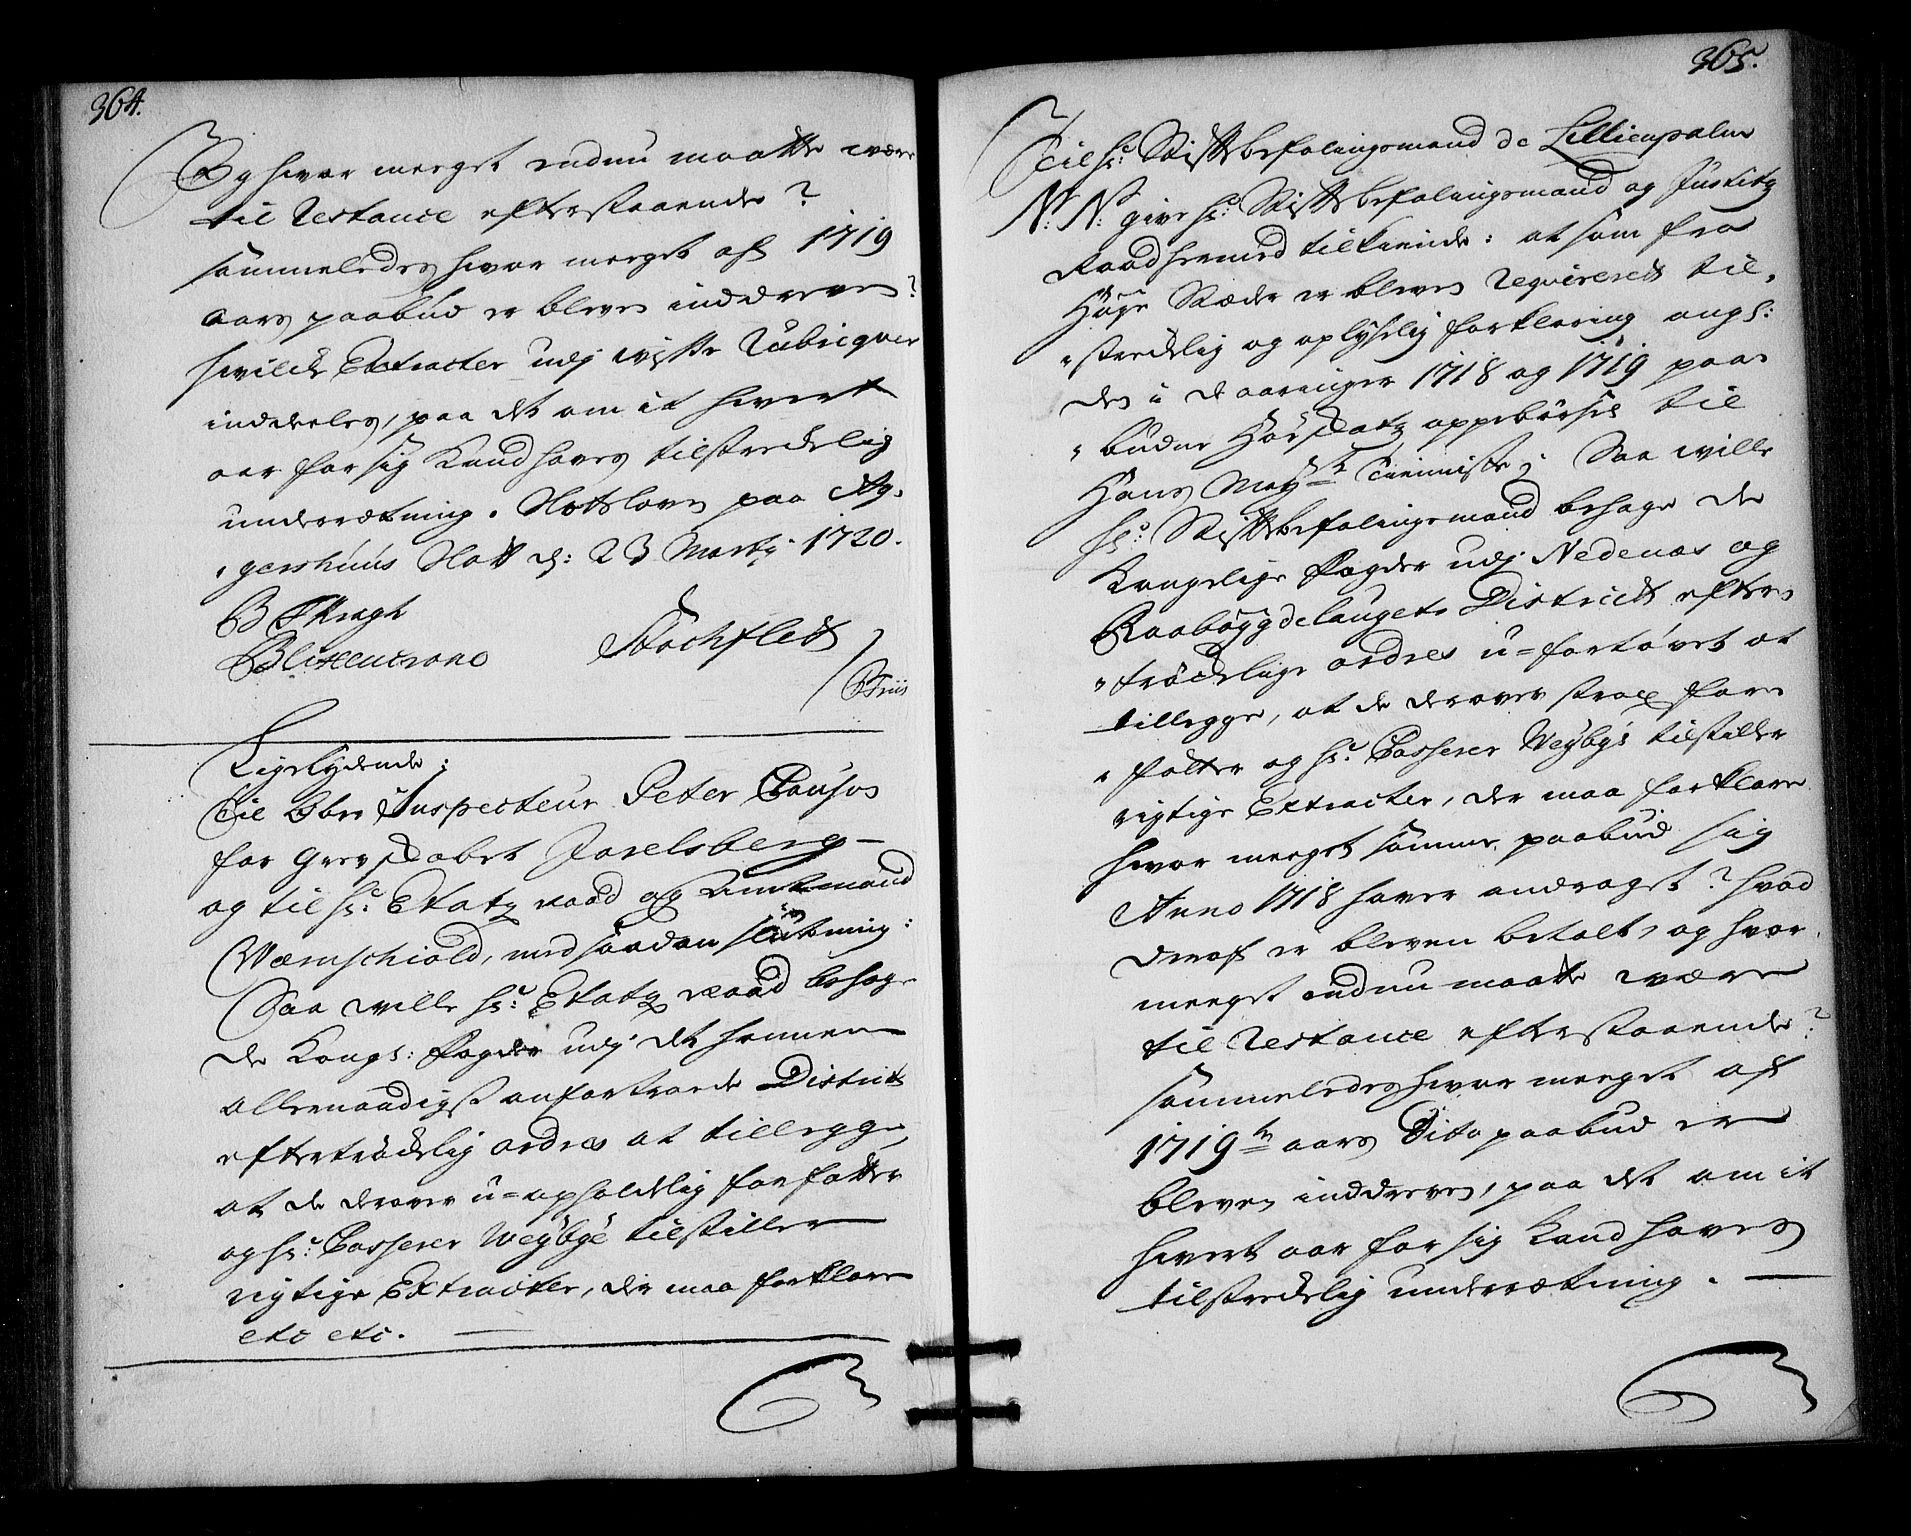 364.
Og hvor meeget endnu maatte være
til Restance efterstaaende?
sammeledes hvor meeget af 1719
aars paabud er bleven inddreven?
hvilche Extracter udj wiste Rubriqver
inddeeles, paa det om it hvert
aar for sig kand haves tilstrechelig
underrætning. Slotsloven paa Ag„
„gershuus Slott d: 23 Marty 1720.
B Kragh
Blixencrone Stochfleth
Friis
Ligelydende:
Til Obr Inspecteur Peter Pauson
for Grevskabet Jarelsberg
og til hr: Etatz raad og Amtmand
Wærnschiold, med saadan slutning:
Saa wille hr: Etatz raad behage
de Kongl: Fogder udj det hannem
allernaadigst anfortroede District
eftertrøchelig ordres at tillegge,
at de derover u=opholdelig forfatter
og hr: Casserer Weybye tilstiller
rigtige Extracter, der maa forklare
etc etc.
365.
Til hr: Stiftbefalingsmand de Lillienpalm
N: N: give hr: Stiftbefalingsmand og Justitz
Raad hermed tilkiende: at som fra
Høye Stæder er bleven reqvireret til„
„strechelig og oplyselig forklaring angl:
den i de aaringer 1718 og 1719 paa„
„budne Høy skatz oppebørsel til
Hans Mayts Tienniste; Saa wille
hr: Stiftbefalingsmand behage de
Kongelige Fogder udj Nedenæs og
Raabøygdelaugets District efter„
„trøchelige ordres u=fortøvet at
tillegge, at de derover strax for„
„fatter og hr: Casserer Weybye tilstiller
rigtige Extracter, der maa forklare
hvor meeget samme paabud sig
Anno 1718 haver andraget? hvad
deraf er bleven betalt, og hvor
meeget endnu maatte være
til Restance efterstaaende?
sammeledes hvor meeget af
1719de aars Dito paabud er
bleven inddreven, paa det om it
hvert aar for sig kand haves
tilstrechelig underrætning.